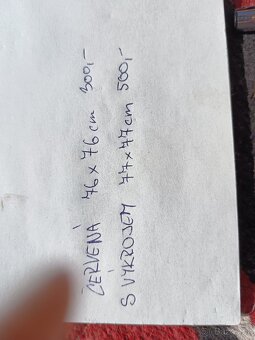 ČERVENÁ 76 x 76 cm 300,-
S VÝKROJEM 77 x 77 cm 500,-